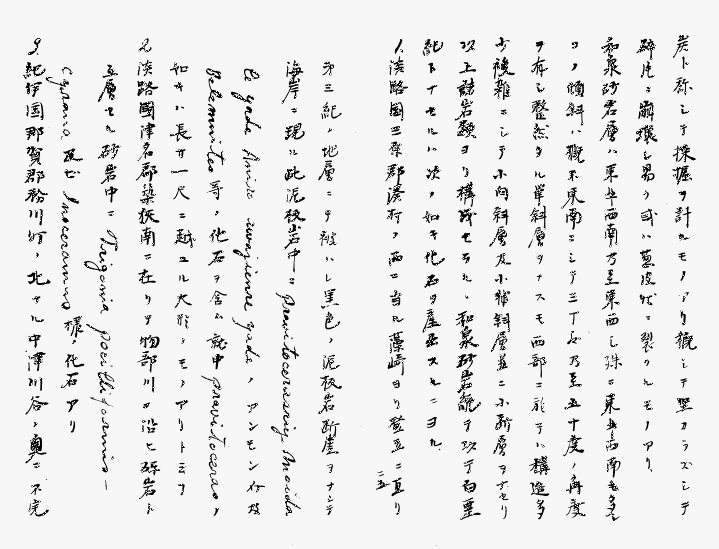 炭ト称シテ採掘ヲ計ルモノアリ概シテ堅カラズシテ
碎片ニ崩壊シ易ク或ハ葱皮状ニ裂クルモノアリ、
和泉砂岩層ハ東北西南乃至東西シ殊ニ東北西南モ多ク
ソノ傾斜ハ概ネ東南ニシテ三十度乃至五十度ノ角度
ヲ有シ整然タル単斜層ヲナスモ西部ニ於テハ構造多
少複雑ニシテ小向斜層及小背斜層並ニ小断層ヲナセリ
以上諸岩類ヨリ構成セラル、和泉砂岩統ヲ以テ白堊
紀トナセルハ次ノ如キ化石ヲ産出スルニヨル、
1. 淡路國三原郡湊村ノ西ニ当ル藻崎ヨリ登立ニ亘リ
二五
第三紀ノ地層ニヲ被ハレ黒色ノ泥板岩断崖ヲナシテ
海岸ニ現ル此泥板岩中ニ Pravitoceras Anoida
ノアンモン介及
Belemnites 哥ノ化石ヲ含ム就中 pravitoceras ノ
如キハ長サ一尺ニ越ユル大形ノモノアリトミフ
2. 淡路國津名郡築狹南ニ在リヲ物部川ニ沿ヒ砾岩ト
互層セル砂岩中ニ Trigonia pocilliformis
Cyrena 及ビ Inoceramus 様ノ化石アリ
9. 紀伊国那賀郡粉川町ノ北ナル中津川谷ノ奧ニ不完